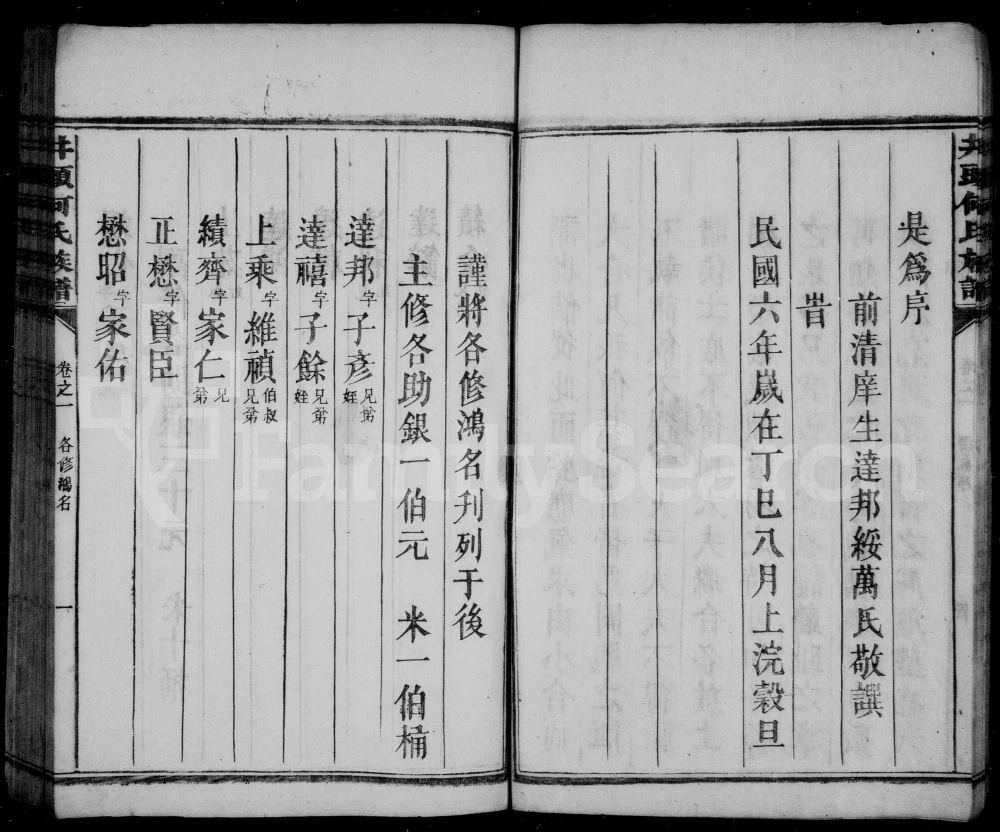 井頭何氏族譜
是爲序
前清庠生達邦綏萬氏敬譔
旹
民國六年歲在丁巳八月上浣穀旦
謹將各修鴻名刊列于後
主修各助銀一伯元 米一伯桶
達邦字子彥兄弟姪
達禧字子餘兄弟姪
上乘字維禎伯叔兄弟
績齊字家仁兄弟
正懋字賢臣
懋昭字家佑
井頭何氏族譜 卷之一 各修鴻名 一
FamilySearch